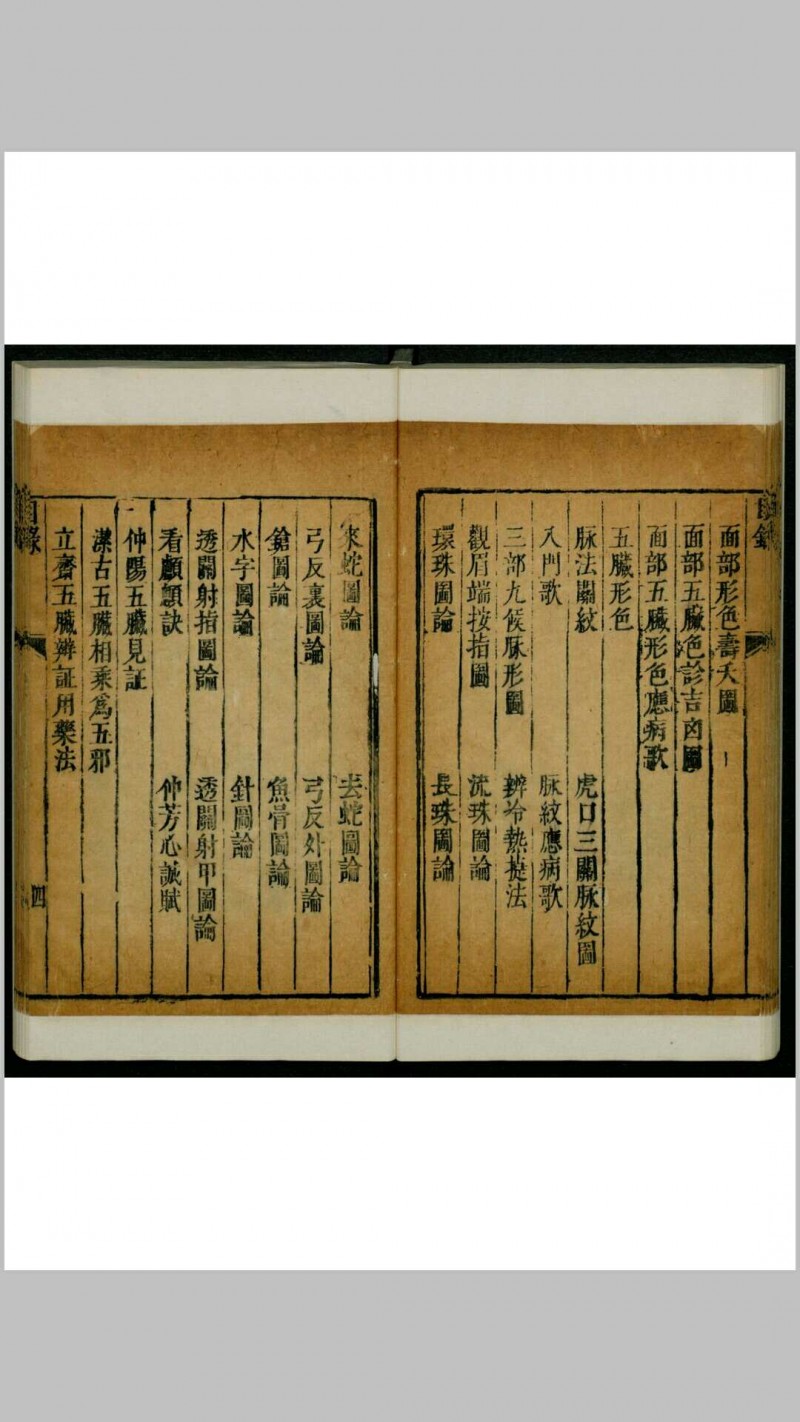 目錄
面部形色壽夭圖
面部五臟色診吉凶圖
面部五臟形色應病歌
五臟形色
脉法關紋　虎口三關脉紋圖
入門歌　脉紋應病歌
三部九候脉形圖　辨冷熱㨗法
觀眉端按指圖　流珠圖論
環珠圖論　長珠圖論
來蛇圖論　去蛇圖論
弓反裏圖論　弓反外圖論
鎗圖論　魚骨圖論
水字圖論　針圖論
透關射指圖論　透關射甲圖論
看顱顖訣　仲芳心誠賦
仲陽五臟見証
潔古五臟相乘爲五邪
立齋五臟辨証用藥法
目錄
四